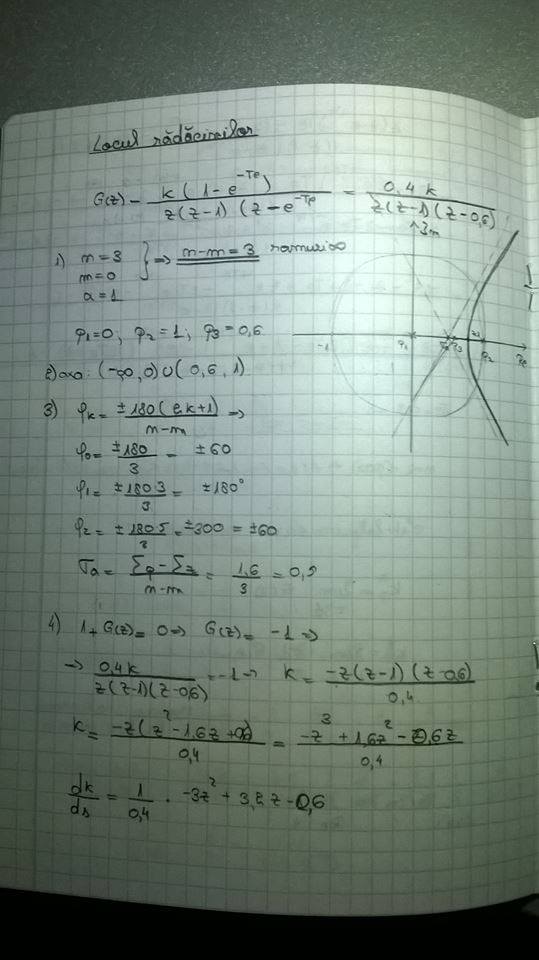 Locul rădăcinilor
G(z) - k(1-e^-Te) / z(z-1)(z-e^-Te) = 0,4k / z(z-1)(z-0,6)
1) n=3
m=0
a=1
} => n-m=3 ramuri
p1=0; p2=1; p3=0,6
2) axa: (-∞,0)∪(0,6,1)
3) φk = ±180(2k+1) / n-m =>
φ0= ±180/3 = ±60
φ1= ±180·3/3 = ±180°
φ2= ±180·5/3 = ±300 = ±60
σa= Σp-Σz / n-m = 1,6/3 = 0,5
4) 1+G(z)=0 => G(z)= -1 =>
-> 0,4k / z(z-1)(z-0,6) = -1 -> k= -z(z-1)(z-0,6) / 0,4
k= -z(z²-1,6z+0,6) / 0,4 = -z³+1,6z²-0,6z / 0,4
dk/ds = 1/0,4 · -3z²+3,2z-0,6
Im
-1 p1 p3 p2 Re